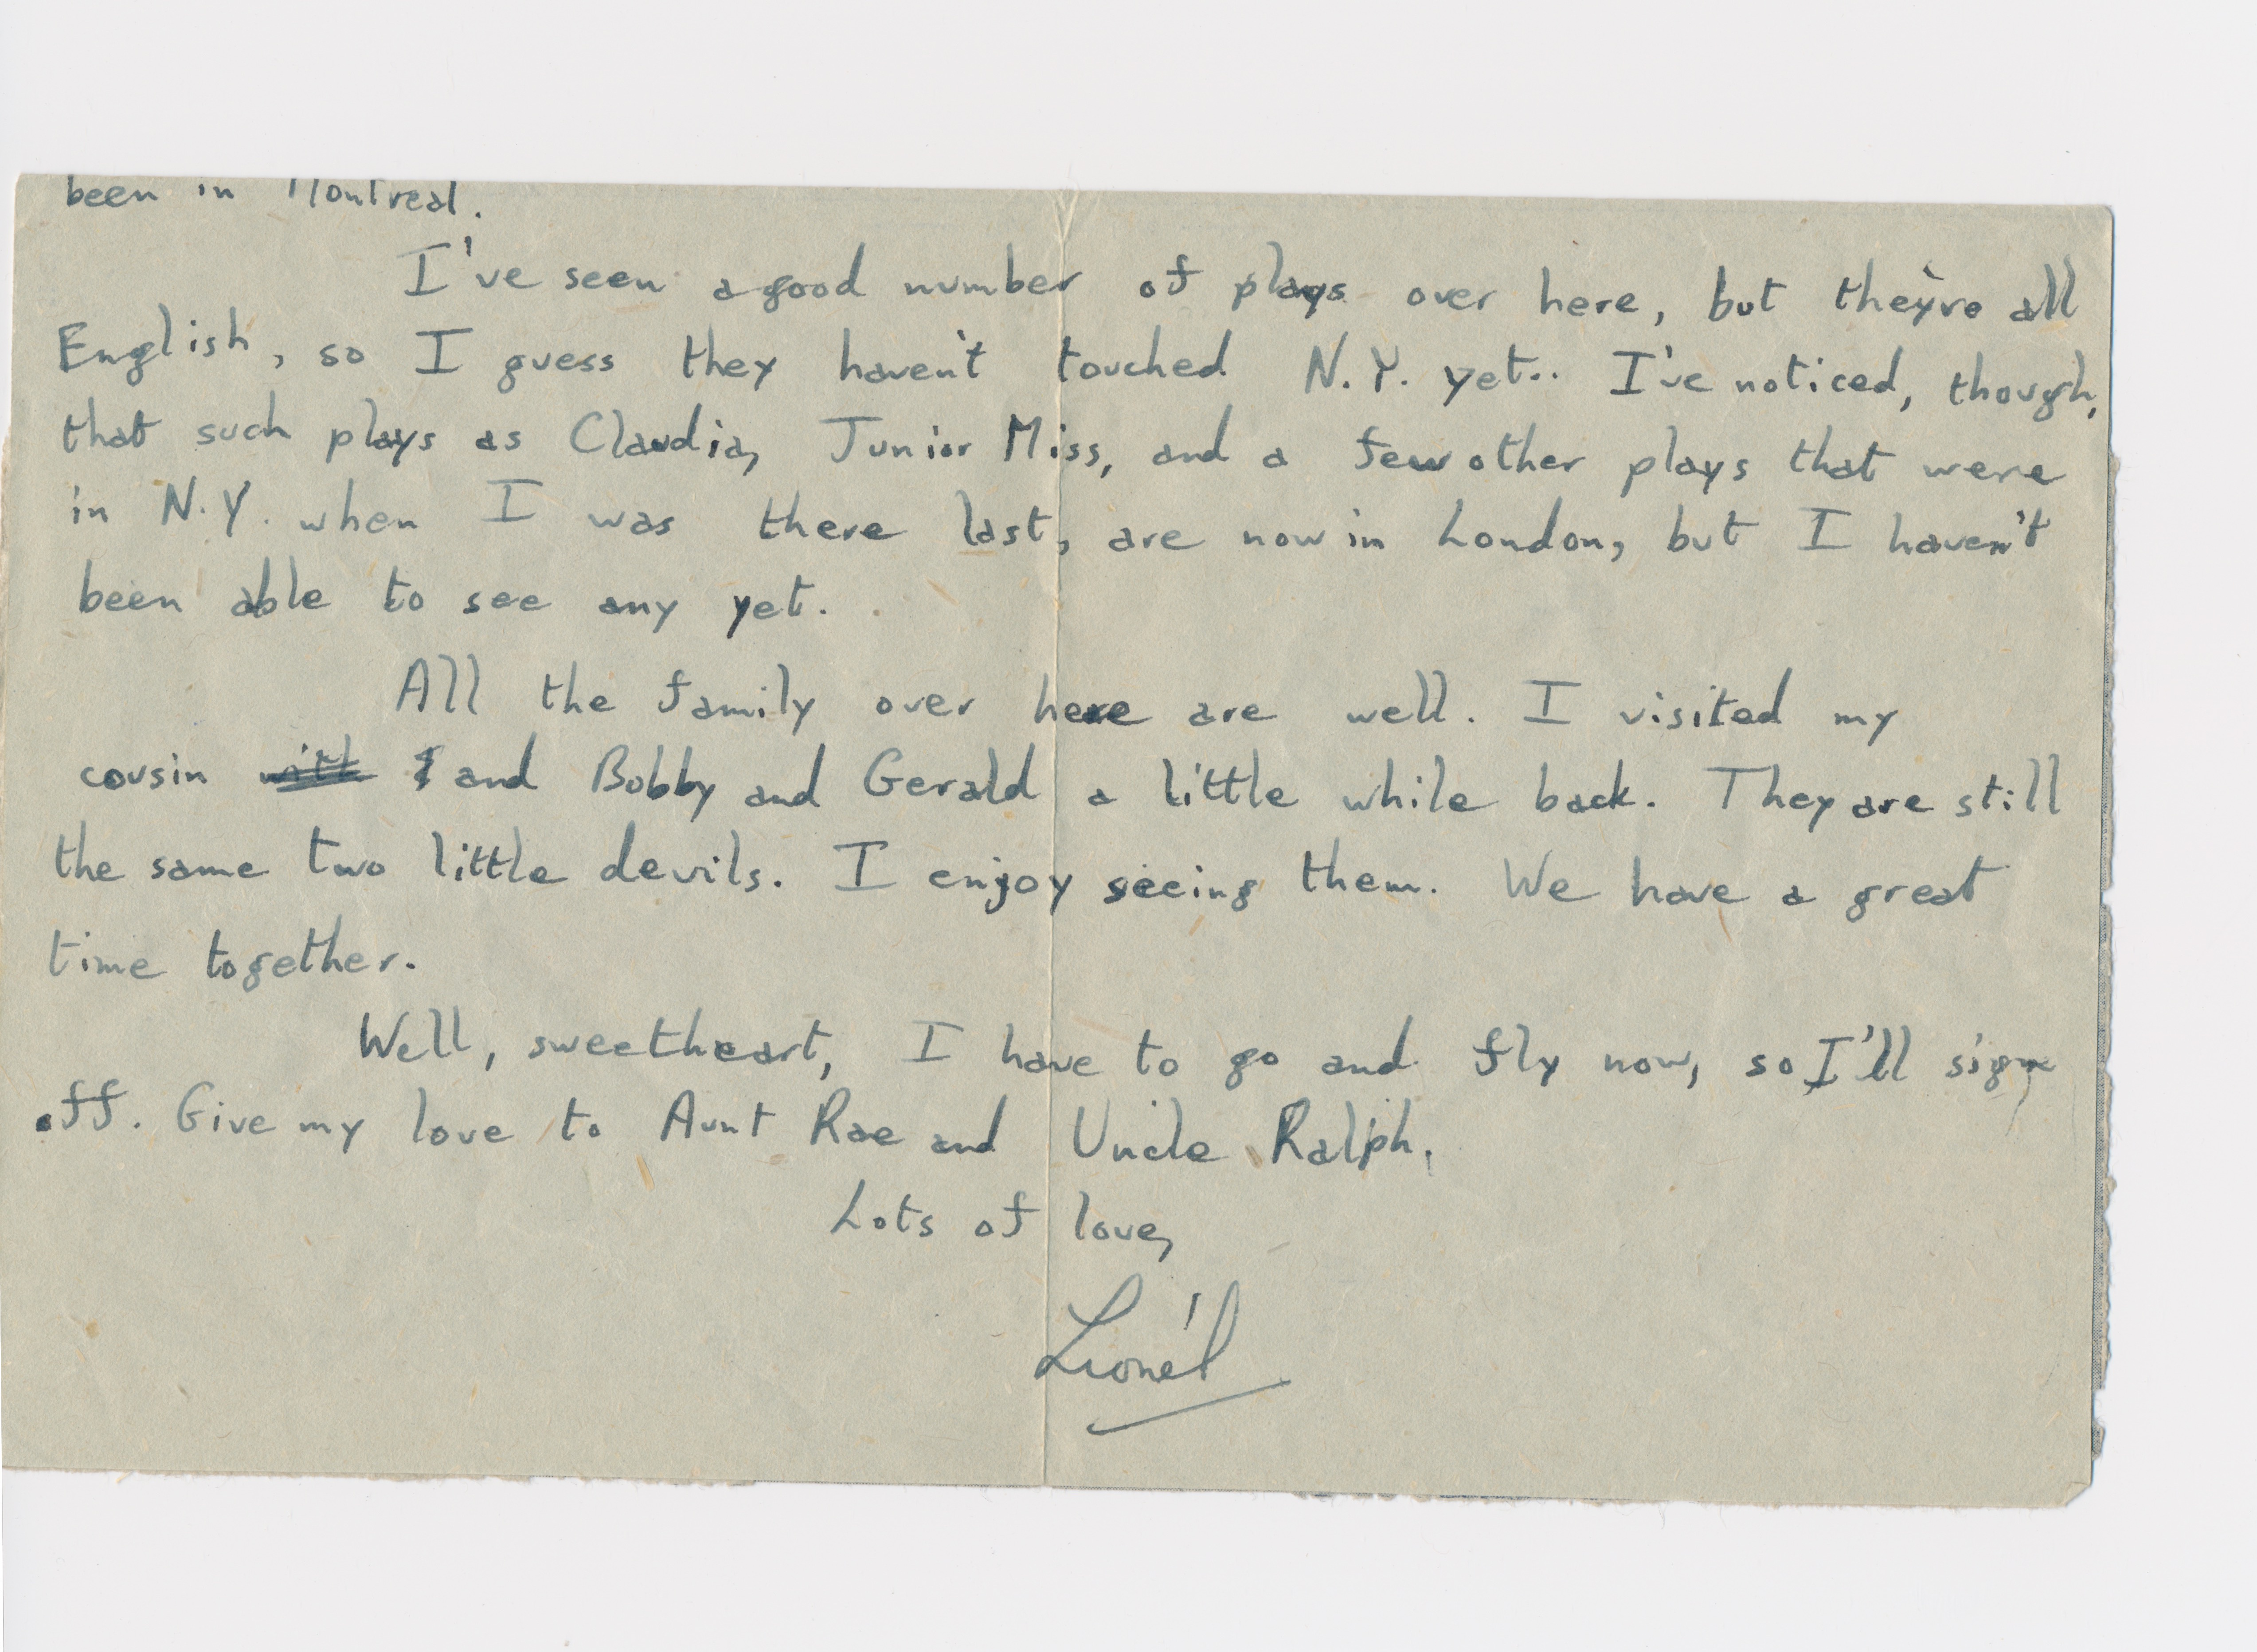 been in Montreal.
I've seen a good number of plays over here, but they're all
English, so I guess they haven't touched N.Y. yet.. I've noticed, though,
that such plays as Claudia, Junior Miss, and a few other plays that were
in N.Y. when I was there last, are now in London, but I haven't
been able to see any yet.
All the family over here are well. I visited my
cousin with and Bobby and Gerald a little while back. They are still
the same two little devils. I enjoy seeing them. We have a great
time together.
Well, sweetheart, I have to go and fly now, so I'll sign
off. Give my love to Aunt Rae and Uncle Ralph.
Lots of love,
Lionel